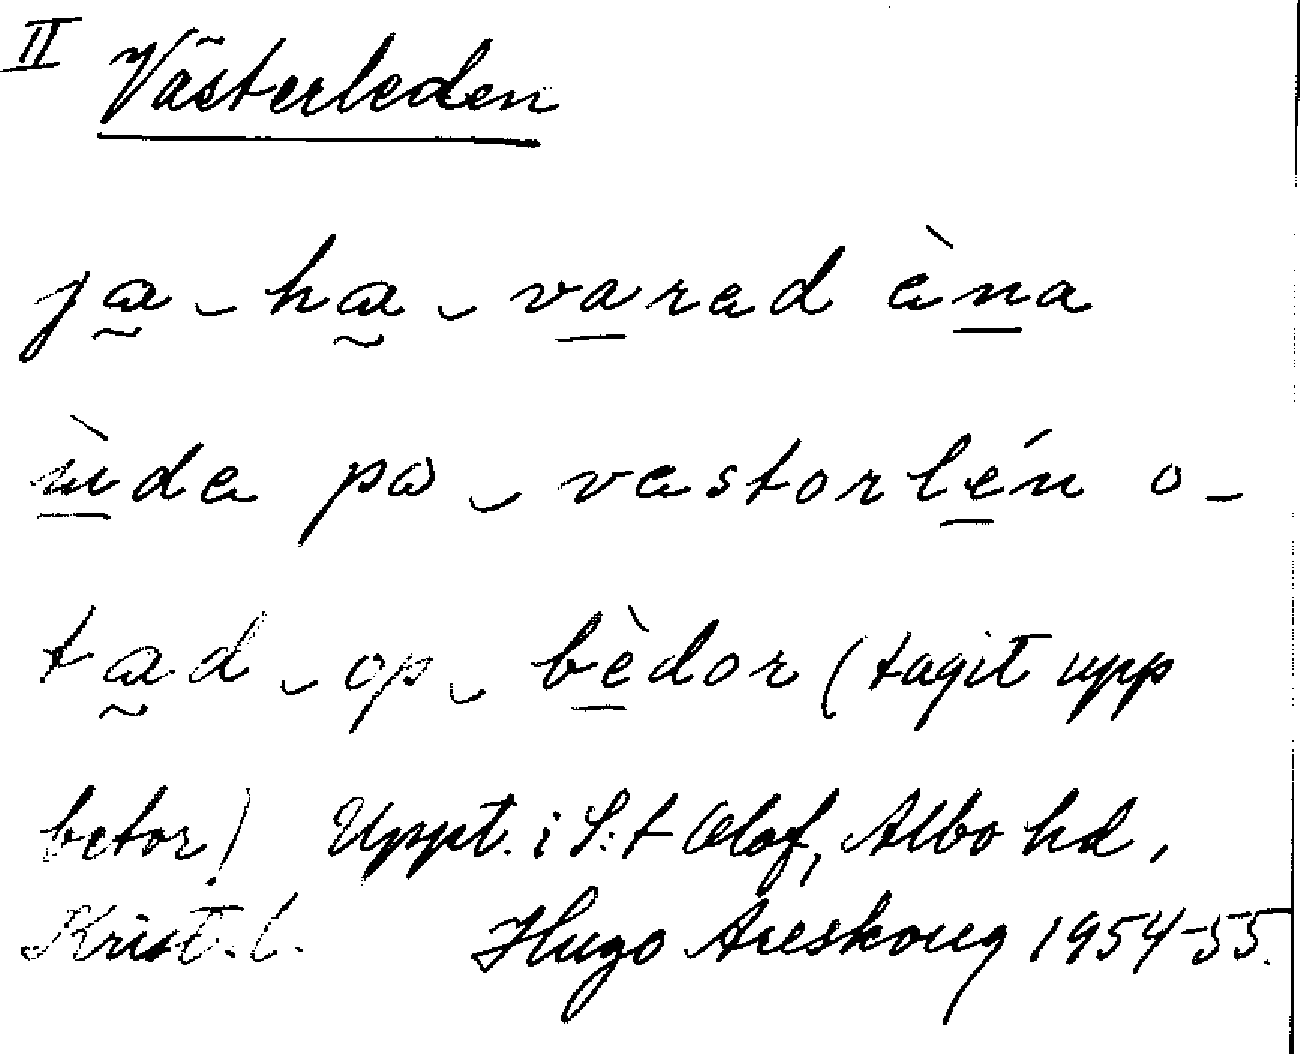 II Västerleden
ja ha varad èna
ìnda pa vastorlén o
tad op bèdor (tagit upp
betor) Uppt. i S:t Olof, Albo hd,
Krist. l. Hugo Areskoug 1954-55.